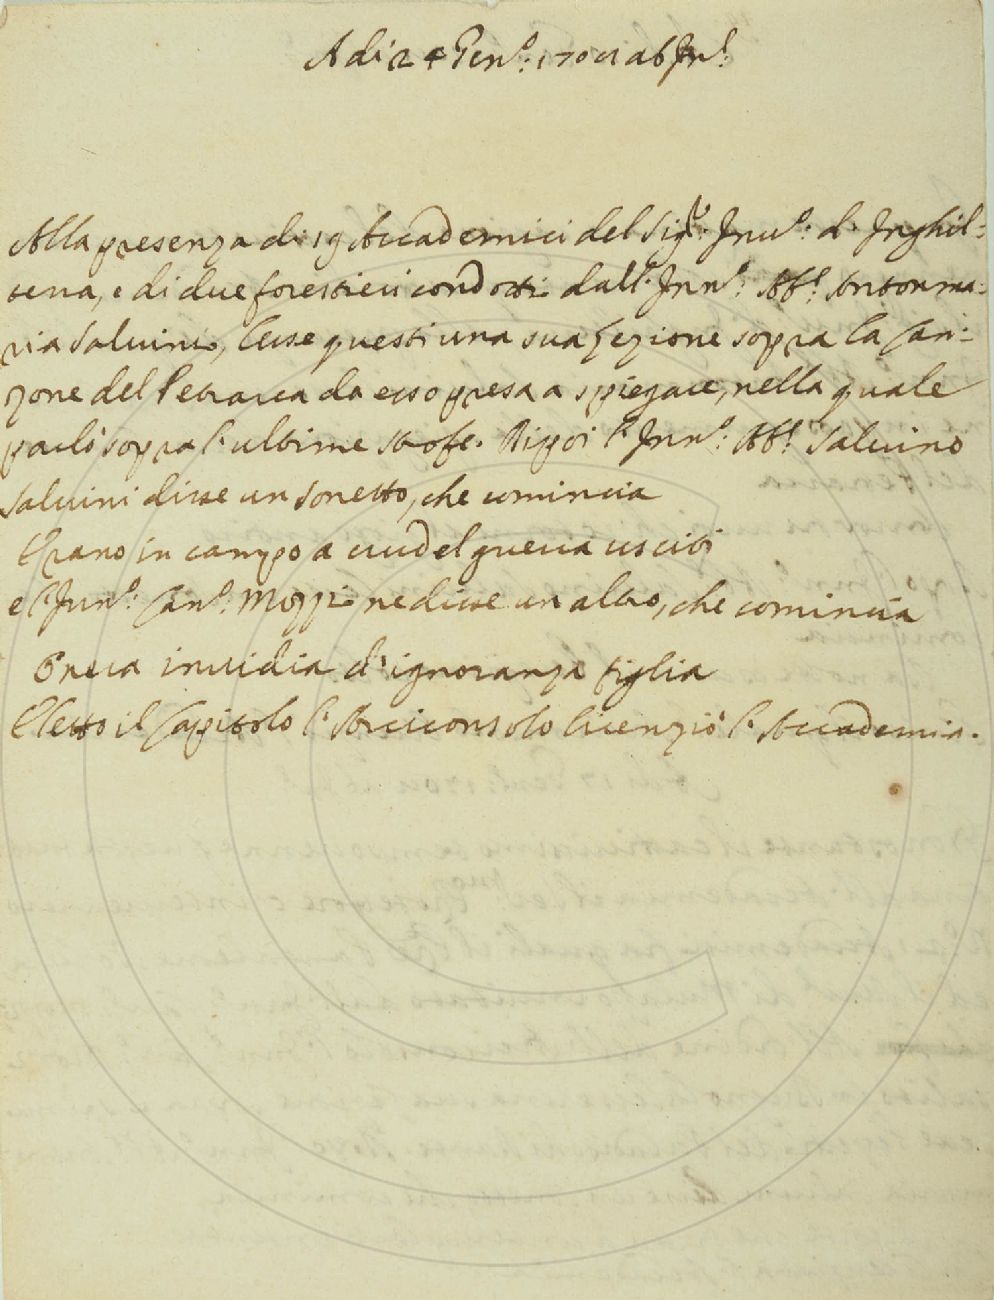 Adi 24 Genº: 1701 ab Incº:
Alla presenza di 19 Accademici del Sigr: Inuº: d' Inghil=
terra, e di due forestieri condotti dall' Innº: Abº: Antonma=
ria Salvini, lesse questi una sua Lezione sopra la Can=
zone del Petrarca da esso presa a spiegare, nella quale
parlò sopra l' ultime strofe. Dippoi l' Innº: Abº: Salvino
Salvini disse un Sonetto, che comincia
Erano in campo a crudel guerra usciti
e l' Innº: Canº: Mozzi ne disse un altro, che comincia
invidia d' ignoranza figlia
Eletto il Cappitolo l' Arciconsolo licenziò l' Accademia.